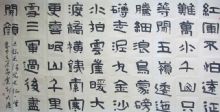 紅軍不怕遠征
難萬水千山只
等閑五嶺逶迤
騰細浪烏蒙磅
礴走泥丸金沙
水拍雲崖暖大
渡橋橫鐵索寒
更喜岷山千里
雪三軍過後盡
開顏